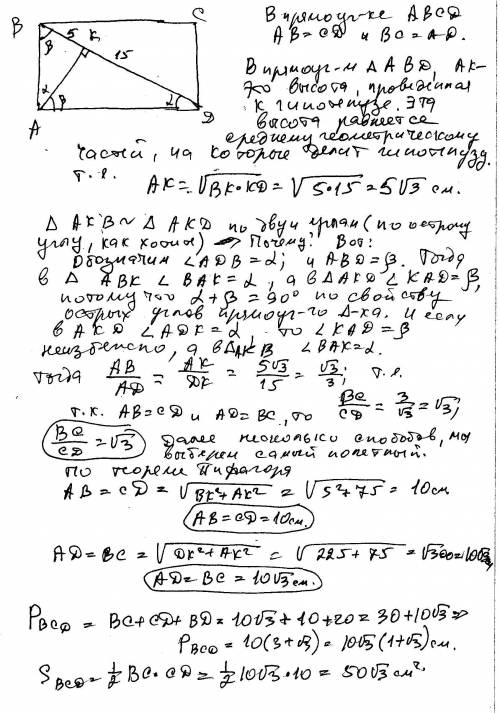 B
5
K
C
В прямоуг-ке ABCD
AB=CD и BC=AD.
β
15
В прямоуг-м Δ ABD, AK-
это высота, проведённая
к гипотенузе. Эта
α
β
α
A
D
высота равняется
среднему геометрическому
частей, на которые делит гипотенузу.
т.е.
AK=√BK·KD=√5·15=5√3 см.
Δ AKB ~ Δ AKD по двум углам (по острому
углу, как хотим) → Почему? Вот:
Обозначим ∠ADB=α; и ABD=β. Тогда
в Δ ABK ∠BAK=α, а в ΔAKD ∠KAD=β,
потому что α+β=90° по свойству
острых углов прямоуг-го Δ-ка. и если
в AKD ∠ADK=α, то ∠KAD=β
неизбежно, а в ΔAKB ∠BAK=α.
Тогда AB/AD = AK/DK = 5√3/15 = √3/3; т.е.
т.к. AB=CD и AD=BC, то BC/CD = 3/√3 = √3;
BC/CD = √3 Далее несколько способов, мы
выберем самый понятный.
По теореме Пифагора
AB = CD = √BK²+AK² = √5²+75 = 10см
AB=CD=10см.
AD=BC = √DK²+AK² = √225+75 = √300=10√3
AD=BC = 10√3 см.
P BCD = BC+CD+BD=10√3+10+20=30+10√3 ⇒
P BCD = 10(3+√3) = 10√3(1+√3) см.
S BCD = 1/2 BC·CD = 1/2 10√3·10 = 50√3 см²